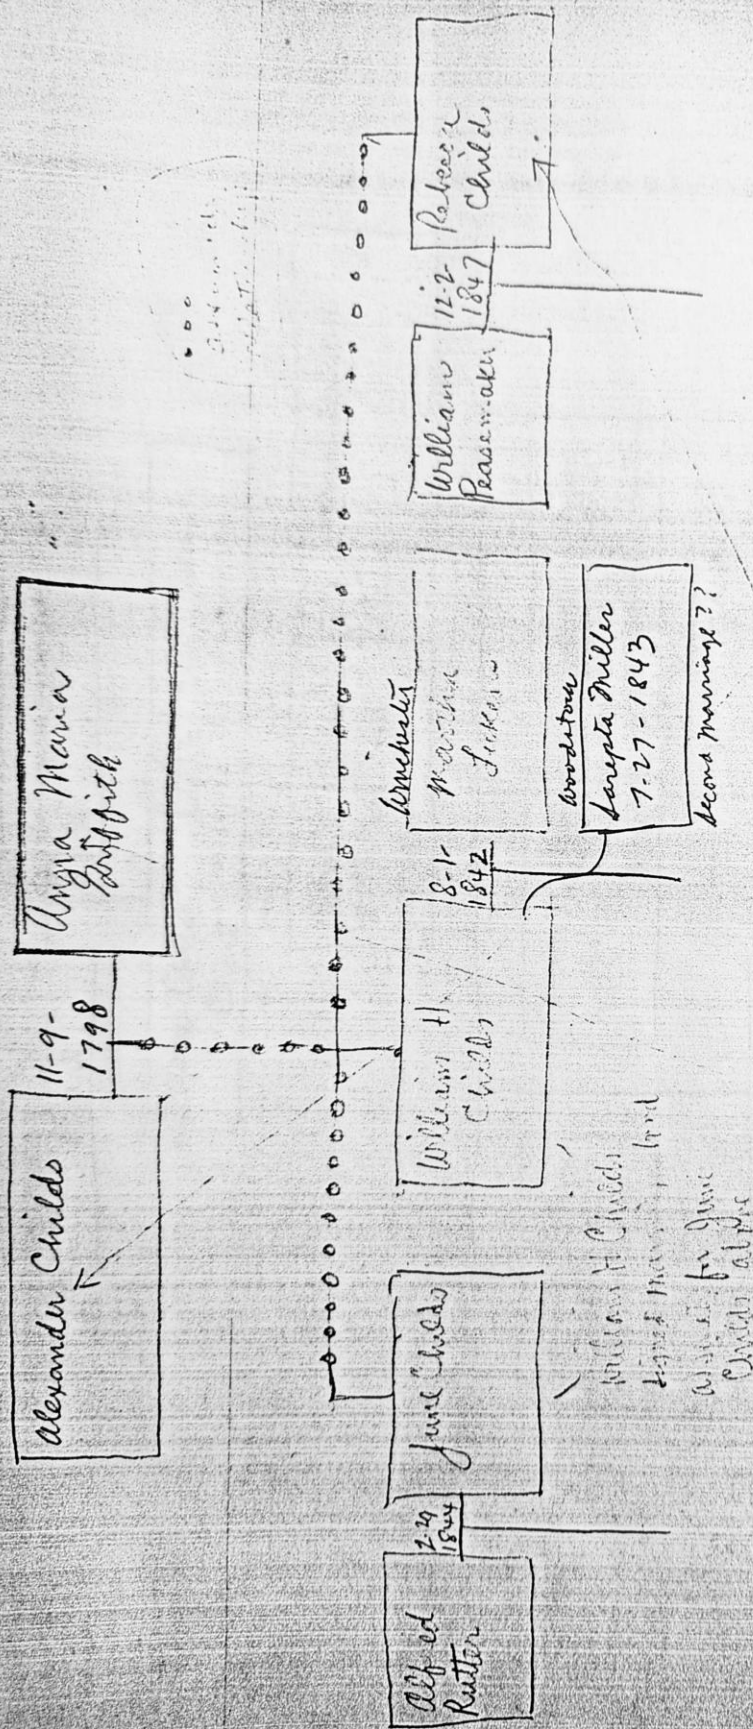 Alexander Childs
11-9-
1798
Anna Maria
Griffith
" "
Alfred
Rutter
2-29
1844
June Childs
William H.
Childs
8-1-
1842
Winchester
Woodstock
Sarepta Miller
7-27-1843
Second Marriage??
William
Peasemaker
12-2-
1847
Rebecca
Childs
William H Childs
signed
for June
Childs